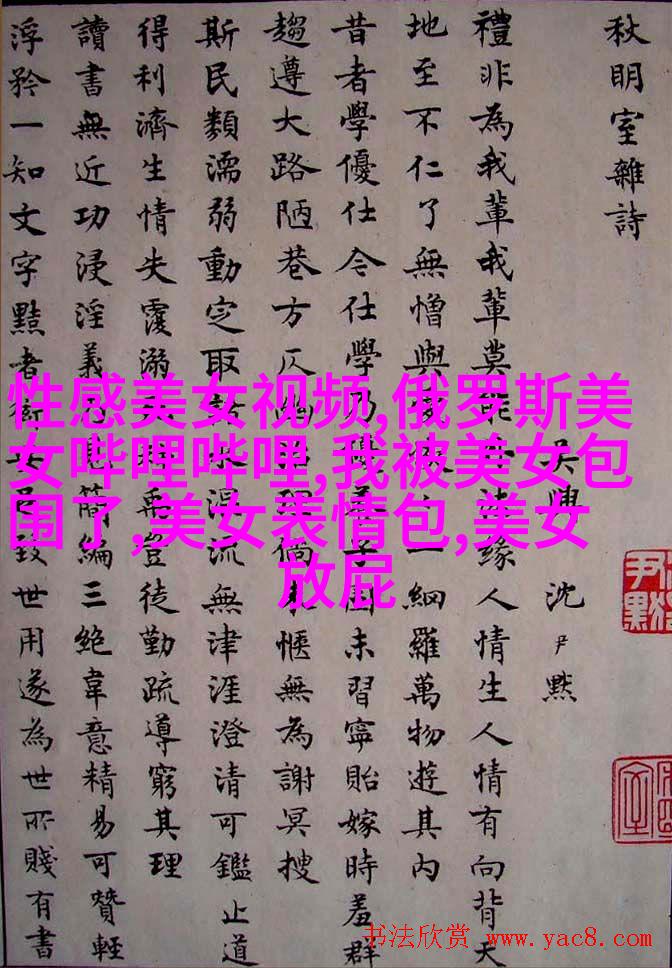 秋明室雜詩
吳興 沈尹默
禮非為我輩我輩莫能法緣人情生人情有向背天
地至不仁了無憎與一網羅萬物遊其内
昔者學優仕今仕學乃未習寧貽嫁時羞群
趨遵大路陋巷方仄未愜無為謝冥搜
斯民類濡弱動定取水湯流無津涯澄清可鑑止道
得利濟生情失覆溺禹豈徒勤疏導窮其理
讀書無近功浸淫義自見簡編三絕韋意精易可贊輕
浮矜一知文字黠者衒致世用遂為世所賤有書
性感美女视频,俄罗斯美
女哔哩哔哩,我被美女包
围了,美女表情包,美女
放屁
尹默
书法欣赏 www.yac8.com